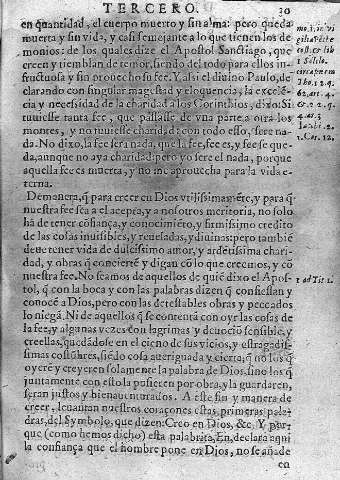 TERCERO. 20
en quantidad, el cuerpo muerto y sin alma: pero queda
muerta y sin vida, y casi semejante a lo que tienen los de
monios: de los quales dize el Apostol Sanctiago, que
creen y tiemblan de temor, siendo del todo para ellos in-
fructuosa y sin prouecho su fee. Y assi el diuino Paulo, de
clarando con singular magestad y eloquencia, la excelē-
cia y necessidad de la charidad a los Corinthios, dixo: Si
tuuiesse tanta fee, que passasse de vna parte a otra los
montes, y no tuuiesse charidad: con todo esso, sere na-
da. No dixo, la fee sera nada, que la fee, fee es, y fee se que-
da, aunque no aya charidad: pero yo sere el nada, porque
aquella fee es muerta, y no me aprouecha para la vida e-
terna.
Demanera, q̃ para creer en Dios vtilissimamẽte, y para q̃
nuestra fee sea a el acepta, y a nosotros meritoria, no solo
há de tener cõfiança, y conocimiẽto, y firmissimo credito
de las cosas inuisibles, y reueladas, y diuinas: pero tambiẽ
deue tener vida de dulcissimo amor, y ardẽtissima chari-
dad, y obras q̃ concierté y digan cõ lo que creemos, y cõ
nuestra fee. No seamos de aquellos de quiẽ dixo el Apos-
tol, q̃ con la boca y con las palabras dizen q̃ confiessan y
conocé a Dios, pero con las detestables obras y peccados
lo niegã. Ni de aquellos q̃ se contentã con oyr las cosas de
la fee, y algunas vezes con lagrimas y deuociõ sensible, y
creellas, quedãdose en el cieno de sus vicios, y estragadis-
simas costũbres, siẽdo cosa aueriguada y cierta, q̃ no los q̃
oyerẽ y creyeren solamente la palabra de Dios, sino los q̃
juntamente con esto la pusieren por obra, y la guardaren,
seran justos y bienauenturados. A este fin y manera de
creer, leuantan nuestros coraçones estas, primeras pala-
bras, del Symbolo, que dizen: Creo en Dios, &c. Y por-
que (como hemos dicho) esta palabrita, En, declara aqui
la confiança que el hombre pone en Dios, no se añade
en
1 ad Tit. 1.